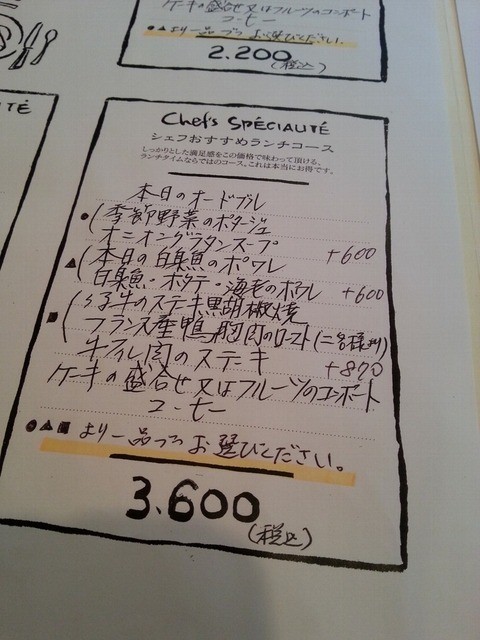 ケーキの盛合せ又はフルーツのコンポート
コーヒー
●▲より一品づつお選びください。
2.200
(税込)
Chef's SPÉCIALITÉ
シェフおすすめランチコース
しっかりとした満足感をこの価格で味わって頂ける、
ランチタイムならではのコース。これは本当にお得です。
本日のオードブル
●(季節野菜のポタージュ
オニオングラタンスープ +600
▲(本日の白身魚のポワレ
白身魚・ホタテ・海老のポワレ +600
■(仔牛のステキ黒胡椒焼
フランス産鴨胸肉のロースト(二名様より)
牛フィレ肉のステキ +870
ケーキの盛合せ又はフルーツのコンポート
コーヒー
●▲■より一品づつお選びください。
3.600
(税込)